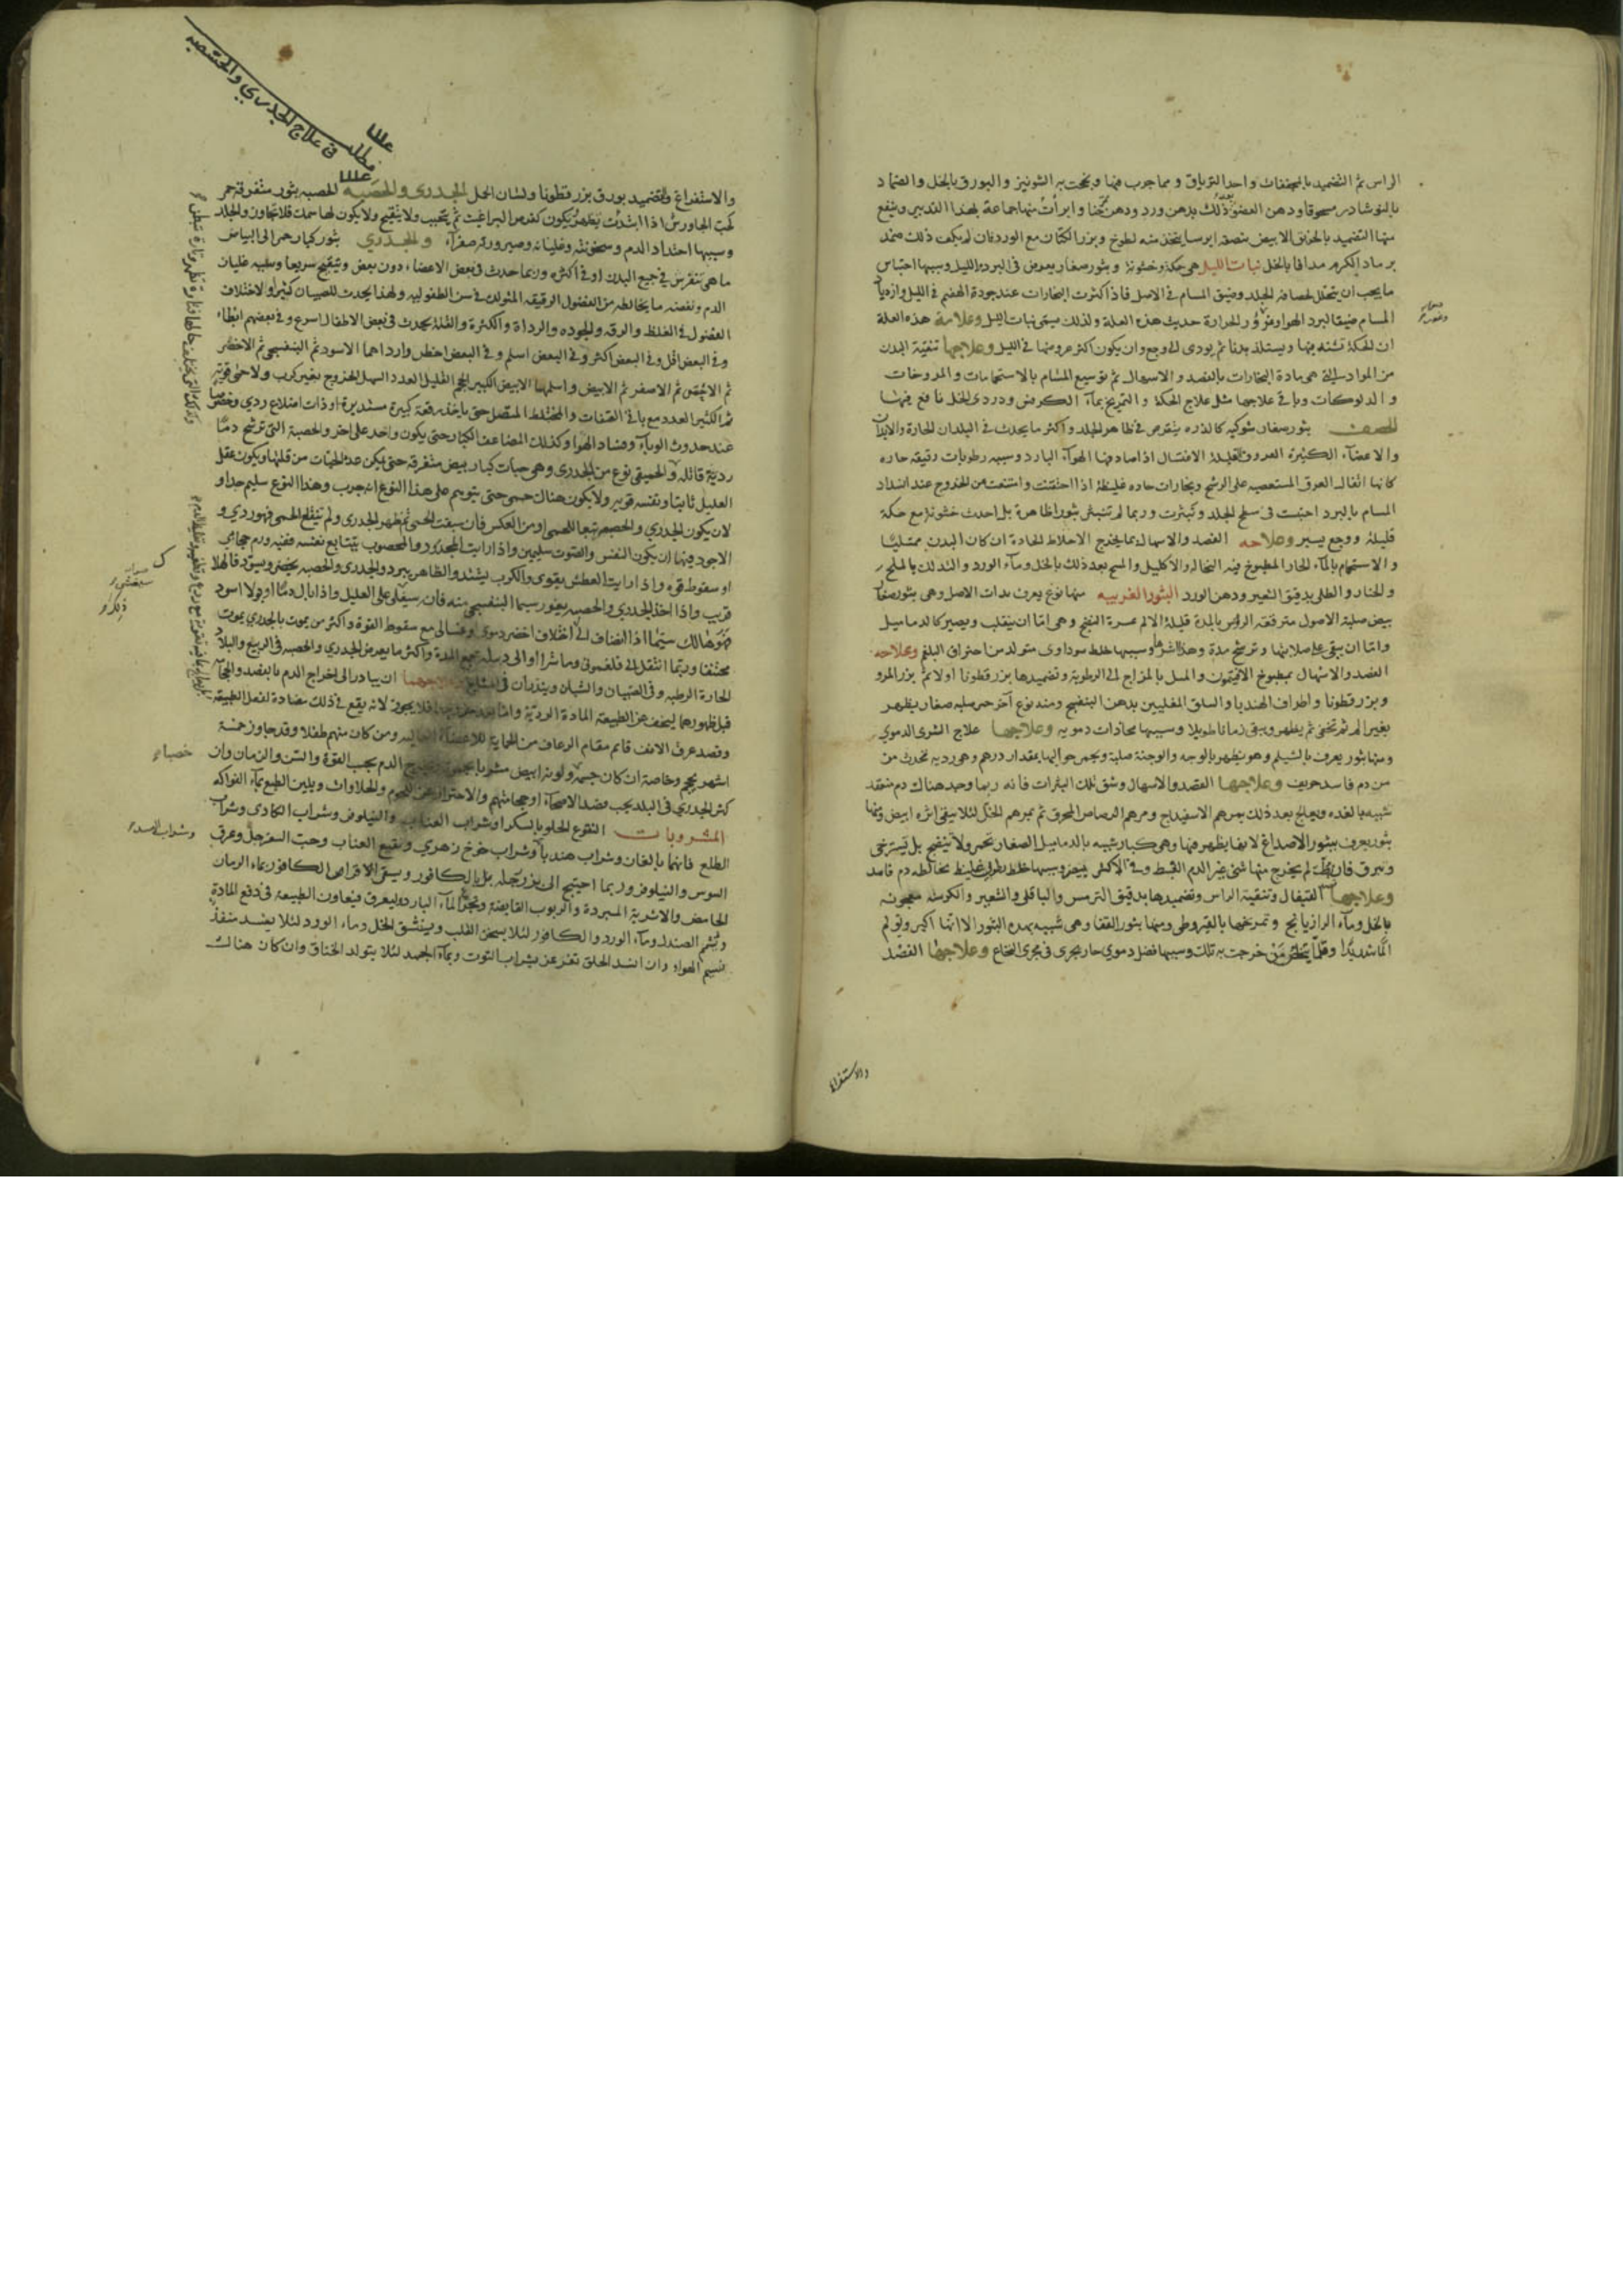 الراس ثم التضميد بالمجففات واحد الترياق ومما جرب فيها ونجحت به الشونيز والبورق بالخل والضماد
بالنوشادر مسحوقا ودهن العضو بعد ذلك بدهن ورد ودهن وابرأت منها جماعة بهذا التدبير وينفع
منها التضميد بالخربق الابيض بنصفه ايرسا يتخذ منه لطوخ وبزر الكتان مع الورد فان لم يكف ذلك ضمد
برماد الكرم مدافا بالخل نبات الليل هي حكة وخشونة وبثور صغار يعرض في البرد والليل وسببها احتباس
ما يجب ان يتحلل لحصافة الجلد وضيق المسام في الاصل فاذا كثرت البخارات عند جودة الهضم في الليل وازدياد
المسام ضيقا لبرد الهواء الحرارة حدثت هذه العلة ولذلك سمى نبات الليل وعلامة هذه العلة
ان الحكة تشتد فيها ويستلذ بدنا ثم يودى الى وجع وان يكون اكثر عروضها في الليل وعلاجها تنقية البدن
من المواد التي هي مادة البخارات بالفصد والاسهال ثم توسيع المسام بالاستحمامات والمروخات
والدلوكات وباقي علاجها مثل علاج الحكة والتمريخ بماء الكرفس ودردى الخل نافع فيها
الحصف بثور صغار شوكية كالذرة ينفرش في ظاهر الجلد واكثر ما يحدث في البلدان الحارة والابدان
والاعضاء الكثيرة العروق القليلة الاغتسال اذا صادفها الهواء البارد وسببه رطوبات رقيقة حاره
كانها اثفال العرق المستعصيه على الرشح وبخارات حاده غليظة اذا احتقنت وامتنعت من الخروج عند انسداد
المسام بالبرد احتبست في سطح الجلد وبثرت وربما لم تنبثر بثورا ظاهرة بل احدث خشونة مع حكة
قليلة ووجع يسير وعلاجه الفصد والاسهال بما يخرج الاخلاط الحادة ان كان البدن ممتليا
والاستحمام بالماء الحار المطبوخ فيه النخالة والاكليل والمسح بعد ذلك بالخل وماء الورد والتدلك بالملح
والحناء والطلى بدقيق الشعير ودهن الورد البثور الغريبه منها نوع يعرف بذات الاصل وهي بثور صغار
بيض صلبة الاصول متفرقة الراس بالمدة قليلة الالم عسرة النضج وهي اما ان ينقلب ويصير كالدماميل
واما ان يبقى على صلابتها وترشح مدة وسببها خلط سوداوى متولد من احتراق البلغم وعلاجه
الفصد والاسهال بمطبوخ الافتيمون والميل بالمزاج الى الرطوبة وتضميدها ببزر قطونا اولا ثم بزر المرو
وبزر قطونا واطراف الهندبا والسلق المغليين بدهن البنفسج ومنه نوع آخر حمر صلبه صغار يظهر
بغير الم ثم تخفى ثم يظهر ويبقى زمانا طويلا وسببها بخارات دمويه وعلاجها علاج الشرى الدموي
ومنها بثور يعرف بالشيلم وهو يظهر بالوجه والوجنة صلبة ويحمر حواليها بمقدار درهم وهي رديه تحدث من
من دم فاسد حريف وعلاجها الفصد والاسهال وشق تلك البثرات فانه ربما وجد هناك دم منعقد
شبيه بالغدد ويعالج بعد ذلك بمرهم الاسفيداج ومرهم الرصاص المحرق ثم بمرهم الخل لئلا يبقى اثره ابيض ومنها
بثور يعرف ببثور الاصداغ لانها يظهر فيها وهي كبار شبيه بالدماميل الصغار تحمر ولا ينضج بل تسترخى
فان بطت لم يخرج منها شئ غير الدم الغليظ وفي الاكثر وسببها خلط غليظ مخالطه دم فاسد
وعلاجها القيفال وتنقية الراس وتضميدها بدقيق الترمس والباقلى والشعير والكرسنه معجونه
بالخل وماء الرازيانج وتمريخها بالقيروطى ومنها بثور القفا وهي شبيه بهذه البثور الا انها اكبر وتولم
الما شديدا وقلما يتخلص من خرجت به تلك وسببها فضل دموي حار يجرى في مجرى النخاع وعلاجها الفصد
والاستفراغ
في علاج الجدري والحصبه
مطلب
والاستفراغ والتضميد بورق بزر قطونا ولسان الحمل الجدرى والحصبه الحصبه بثور متفرقة حمر
كحب الجاورس اذا ابتدت يظهر يكون كقرص البراغيث ثم يتحبب ولا يتقيح ولا يكون لها سمك فلا تتجاوز الجلد
وسببها احتداد الدم وسخونته وغليانه وصيرورته صفراء والجدري بثور كبار حمر الى البياض
ما هي ينفرش في جميع البدن او في اكثره وربما حدث في بعض الاعضاء دون بعض ويتقيح سريعا وسببه غليان
الدم ونفضه ما يخالطه من الفضول الرقيقه المتولدة في سن الطفولية ولهذا يحدث للصبيان كثيرا ولاختلاف
الفضول في الغلظ والرقة والجودة والرداة والكثرة والقلة يحدث في بعض الاطفال اسرع وفي بعضهم ابطأ
وفي البعض اقل وفي البعض اكثر وفي البعض اسلم وفي البعض اخطر وارداهما الاسود ثم البنفسجي ثم الاخضر
ثم الاحمر ثم الاصفر ثم الابيض واسلمها الابيض الكبير الحجم القليل العدد السهل الخروج بغير كرب ولا حمى قوية
ثم الكثير العدد مع باقي الصفات والمختلط المتصل حتى ياخذ رقعة كبيرة مستديرة او ذات اضلاع ردي وخصوصا
عند حدوث الوباء وفساد الهواء وكذلك المضاعف الكبار حتى يكون واحد على اخر والحصبة التي ترشح دما
ردية قاتله والحميقى نوع من الجدرى وهي حبات كبار بيض متفرقة حتى يمكن عد الحبات من قلتها ويكون عقل
العليل ثابتا ونفسه قوية ولا يكون هناك حمى حتى يتوهم على هذا النوع انه جرب وهذا النوع سليم جدا و
لان يكون الجدري والحصبة تبعا للحمى اجود من العكس فان سبقت الحمى ثم ظهر الجدرى ولم تقلع الحمى فهو ردي و
الاجود فيهما ان يكون النفس والصوت سليمين واذا رايت المجدور والمحصوب يتتابع نفسه ففيه ورم حجابي
او سقوط قوه واذا رايت العطش يقوى والكرب يشتد والظاهر يبرد والجدرى والحصبه يخضر ويسود فالهلاك
قريب واذا اخذ الجدري والحصبه يغور سيما البنفسجي منه فانه سيغشى على العليل واذا بال دما او بولا اسود
فهو هالك سيما اذا انضاف اليه اختلاف اخضر دموى وغسالى مع سقوط القوة واكثر من يموت بالجدري يموت
مختنقا وربما انتقل الى فلغمونى وماشرا او الى دبيله تجمع المدة واكثر ما يعرض الجدري والحصبه في الربيع والبلاد
الحارة الرطبه وفي الصبيان والشبان ويندران في المشايخ وعلاجهما ان يبادر الى اخراج الدم بالفصد والحجامة
قبل ظهورهما ليخف عن الطبيعة المادة الردية واما بعد خروجها فلا يجوز لانه يقع في ذلك مضادة لفعل الطبيعة
وفصد عرق الانف قائم مقام الرعاف من الحماية للاعضاء العالية ومن كان منهم طفلا وقد جاوز خمسة
اشهر يحجم وخاصة ان كان جسمه ولونه ابيض مشوبا بحمرة الدم يجب القوة والسن والزمان وان
كثر الجدري في البلد يجب فصد الاصحاء او حجامتهم والاحتراز عن اللحوم والحلاوات ويلين الطبع بماء الفواكه
المشروبات النقوع الحلو بالسكر او شراب العناب والنيلوفر وشراب الكادى وشراب
الطلع فانهما بالغان وشراب هندبا وشراب خوخ زهري ونقيع العناب وحب السفرجل وعرق
السوس والنيلوفر وربما احتيج الى بزر رجله بل بالكافور ويسقى الاقراص الكافور بماء الرمان
الحامض والاشربة المبردة والربوب القابضة الماء البارد ليعرق فيعاون الطبيعة في دفع المادة
ويشم الصندل وماء الورد والكافور لئلا يسخن القلب وينشق الخل وماء الورد لئلا يفسد منفذ
نسيم الهواء وان انسد الحلق تغرغر بشراب التوت وبماء الجمد لئلا يتولد الخناق وان كان هناك